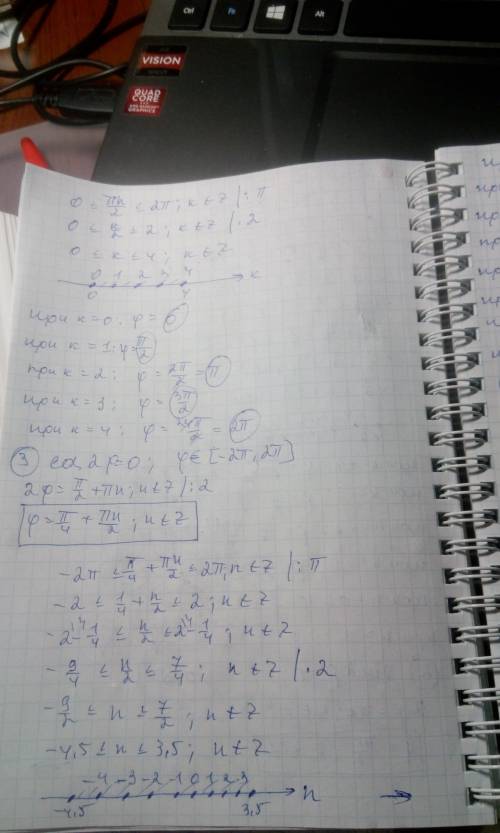 Ctrl Fn Alt
VISION
QUAD CORE
0 ≤ πk/2 ≤ 2π; k ∈ Z |: π
0 ≤ k/2 ≤ 2; k ∈ Z |· 2
0 ≤ k ≤ 4; k ∈ Z
0 1 2 3 4 k
0 4
при k = 0: φ = 0
при k = 1: φ = π/2
при k = 2; φ = 2π/2 = π
при k = 3; φ = 3π/2
при k = 4; φ = 4π/2 = 2π
3 cos 2φ = 0; φ ∈ [-2π, 2π]
2φ = π/2 + πn; n ∈ Z |: 2
φ = π/4 + πn/2; n ∈ Z
-2π ≤ π/4 + πn/2 ≤ 2π; n ∈ Z |: π
-2 ≤ 1/4 + n/2 ≤ 2; n ∈ Z
-2 - 1/4 ≤ n/2 ≤ 2 - 1/4; n ∈ Z
-9/4 ≤ n/2 ≤ 7/4; n ∈ Z |· 2
-9/2 ≤ n ≤ 7/2; n ∈ Z
-4,5 ≤ n ≤ 3,5; n ∈ Z
-4 -3 -2 -1 0 1 2 3 n
-4,5 3,5